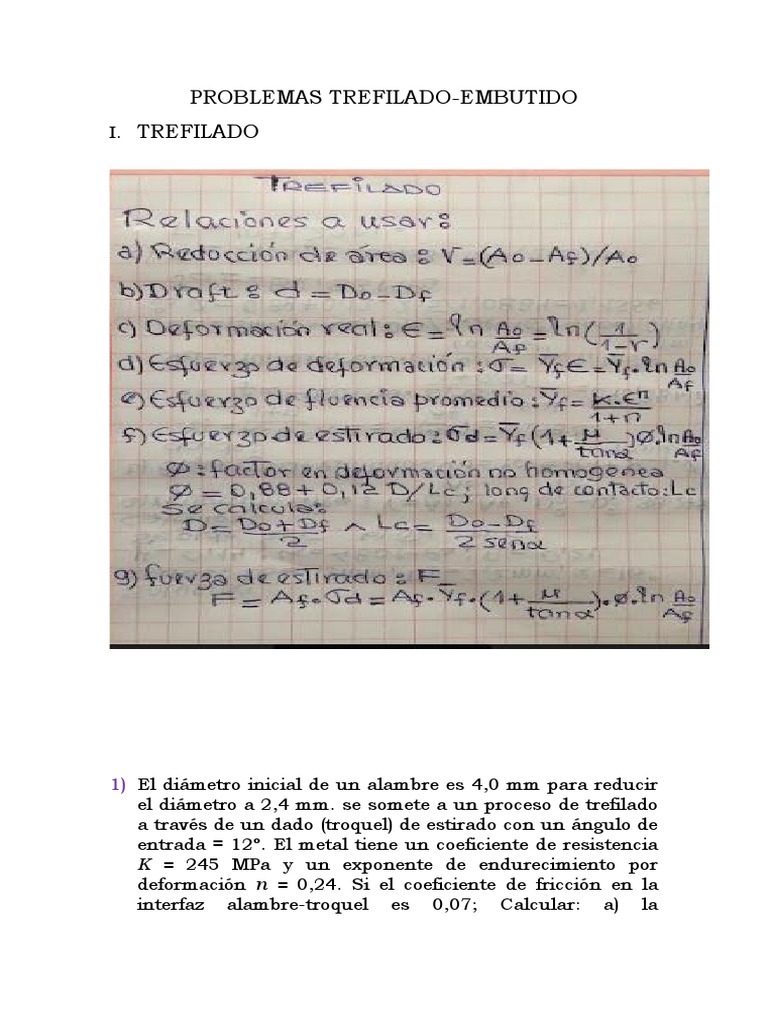 PROBLEMAS TREFILADO-EMBUTIDO
I. TREFILADO
TREFILADO
Relaciones a usar:
a) Reducción de área: r=(Ao-Af)/Ao
b) Draft: d = Do-Df
c) Deformación real: ε=ln Ao/Af=ln(1/1-r)
d) Esfuerzo de deformación: σ= Y̅f ε= Y̅f. ln Ao/Af
e) Esfuerzo de fluencia promedio: Y̅f= K.εⁿ/1+n
f) Esfuerzo de estirado: σd= Y̅f(1+ μ/tanα)Ø.ln Ao/Af
Ø: factor en deformación no homogenea
Ø = 0,88+0,12 D/Lc; long de contacto: Lc
Se calcula:
D= Do+Df/2 ∧ Lc= Do-Df/2 senα
g) fuerza de estirado: F_
F= Af.σd= Af.Y̅f.(1+ μ/tanα).Ø.ln Ao/Af
1) El diámetro inicial de un alambre es 4,0 mm para reducir
el diámetro a 2,4 mm. se somete a un proceso de trefilado
a través de un dado (troquel) de estirado con un ángulo de
entrada = 12°. El metal tiene un coeficiente de resistencia
K = 245 MPa y un exponente de endurecimiento por
deformación n = 0,24. Si el coeficiente de fricción en la
interfaz alambre-troquel es 0,07; Calcular: a) la